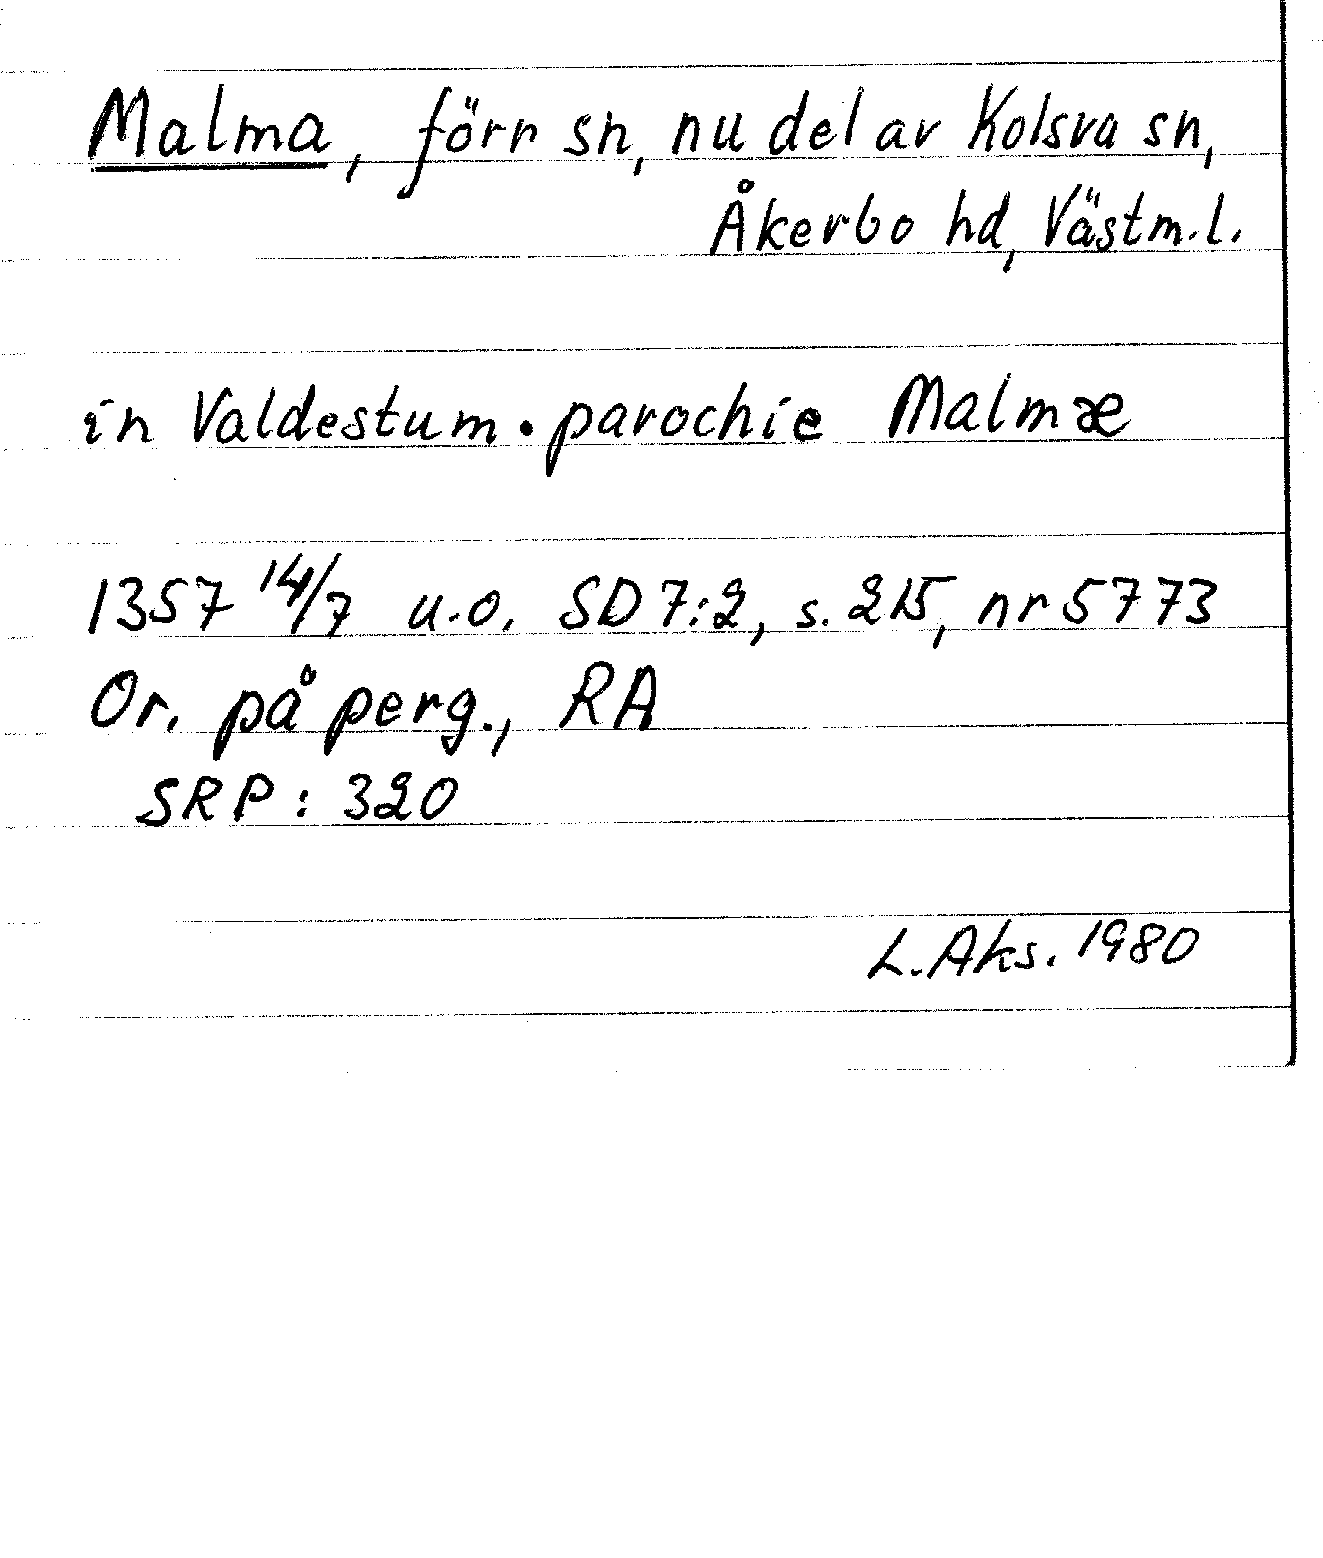 Malma, förr sn, nu del av Kolsva sn,
Åkerbo hd, Västm.l.
in Valdestum . parochie Malmæ
1357 14/7 u.o. SD 7:2, s. 215, nr 5773
Or. på perg., RA
SRP : 320
L. Aks. 1980